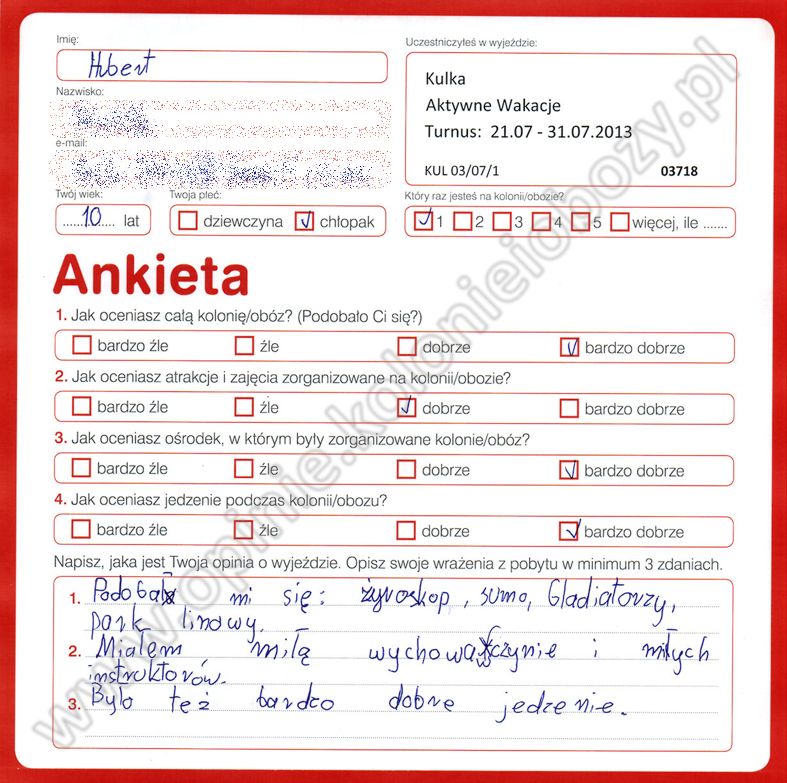 Imię:
Hubert
Nazwisko:
e-mail:
Twój wiek:
10 lat
Twoja płeć:
dziewczyna chłopak
Uczestniczyłeś w wyjeździe:
Kulka
Aktywne Wakacje
Turnus: 21.07 - 31.07.2013
KUL 03/07/1 03718
Który raz jesteś na kolonii/obozie?
1 2 3 4 5 więcej, ile .......
Ankieta
1. Jak oceniasz całą kolonię/obóz? (Podobało Ci się?)
bardzo źle źle dobrze bardzo dobrze
2. Jak oceniasz atrakcje i zajęcia zorganizowane na kolonii/obozie?
bardzo źle źle dobrze bardzo dobrze
3. Jak oceniasz ośrodek, w którym były zorganizowane kolonie/obóz?
bardzo źle źle dobrze bardzo dobrze
4. Jak oceniasz jedzenie podczas kolonii/obozu?
bardzo źle źle dobrze bardzo dobrze
Napisz, jaka jest Twoja opinia o wyjeździe. Opisz swoje wrażenia z pobytu w minimum 3 zdaniach.
1. Podobał mi się: żyroskop, sumo, Gladiatorzy,
park linowy.
2. Miałem miłą wychowawczynie i miłych
instruktorów.
3. Było też bardzo dobre jedzenie.
www.opinie.kolonieiobozy.pl